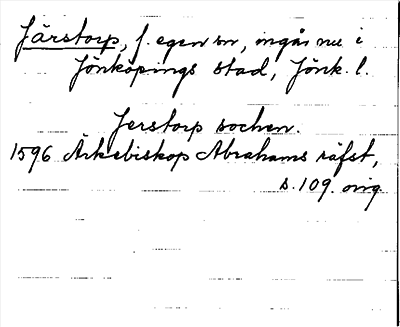 Järstorp, f. egen sn, ingår nu i
Jönköpings stad, Jönk. l.
Jerstorp sochen.
1596 Ärkebiskop Abrahams räfst,
s. 109. orig.